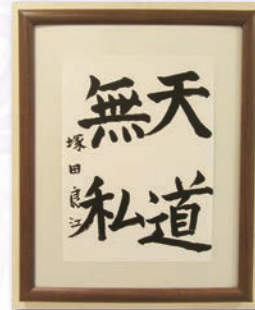 天道
無私
塚田良江